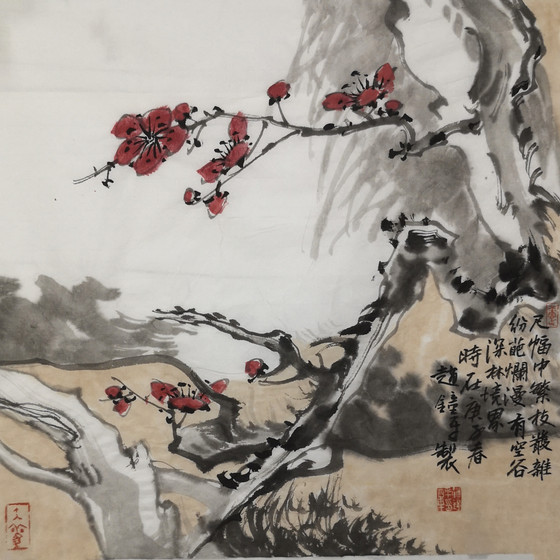 尺幅中繁枝叢雜
份葩爛漫有空谷
深林境界
時在庚子春
趙鐘于製